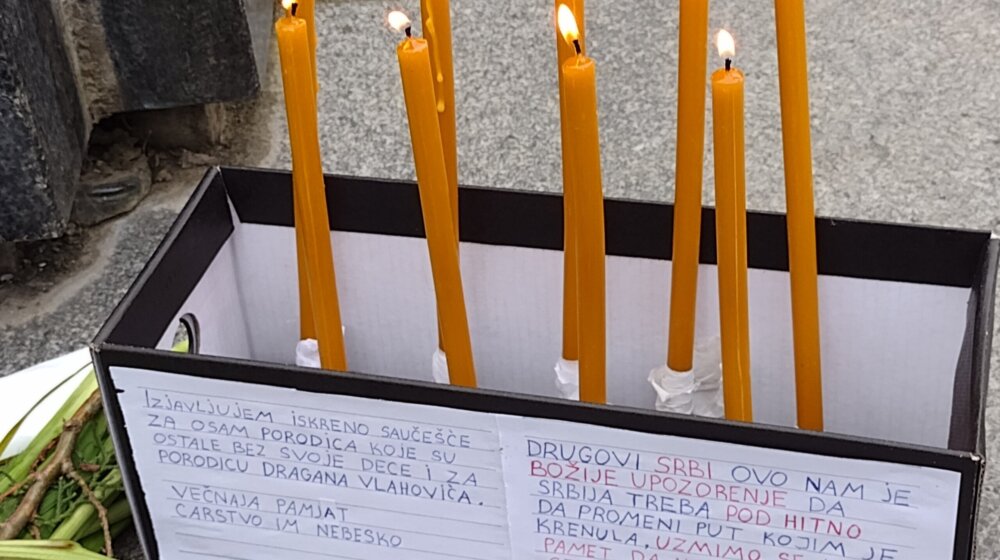 IZJAVLJUJEM ISKRENO SAUČEŠĆE
ZA OSAM PORODICA KOJE SU
OSTALE BEZ SVOJE DECE I ZA
PORODICU DRAGANA VLAHOVIĆA.
VEČNAJA PAMJAT
CARSTVO IM NEBESKO
DRUGOVI SRBI OVO NAM JE
BOŽIJE UPOZORENJE DA
SRBIJA TREBA POD HITNO
DA PROMENI PUT KOJIM JE
KRENULA, UZMIMO SE
PAMET DA